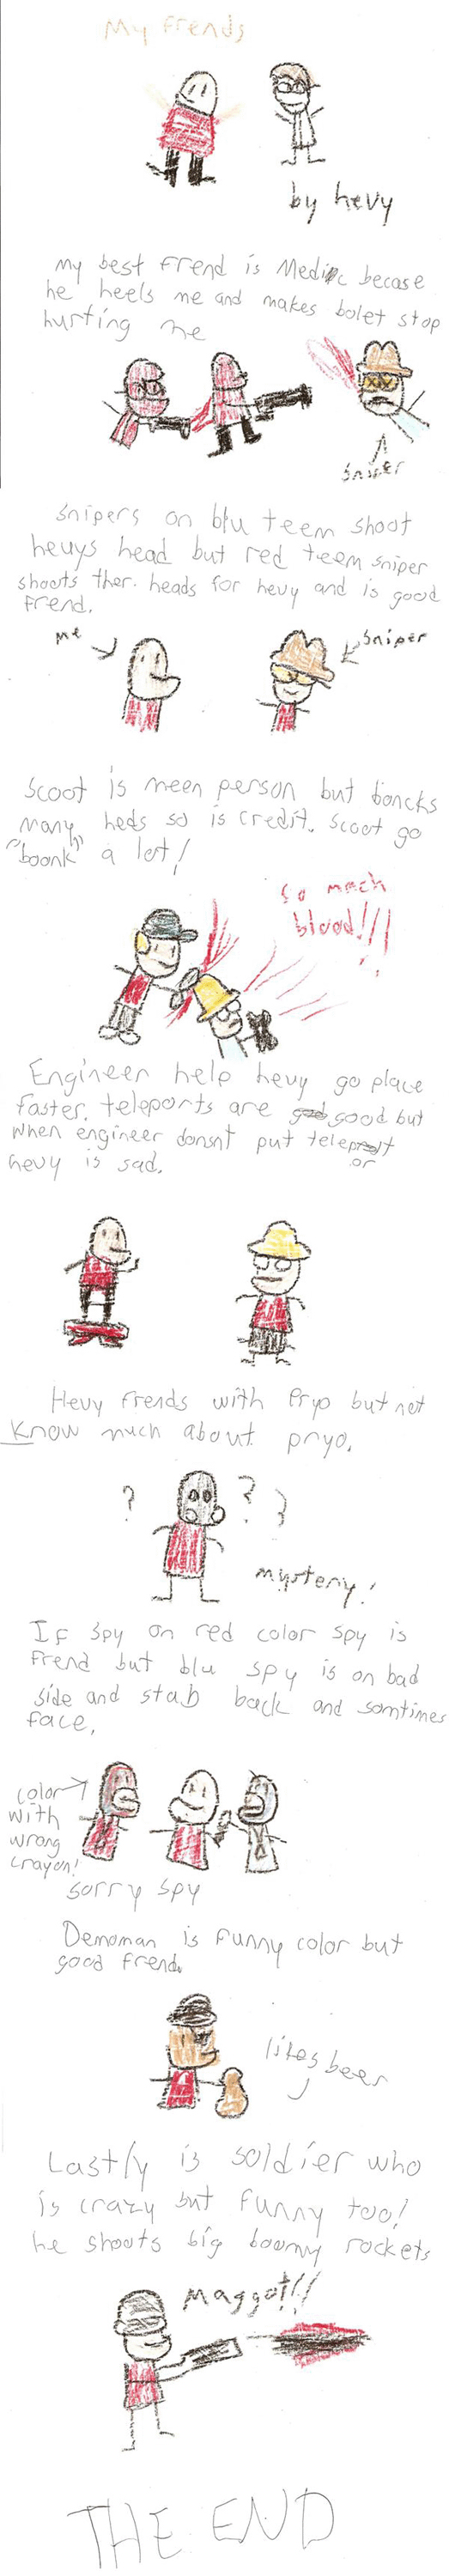 My frends
by hevy
My best frend is Medic becase
he heels me and makes bolet stop
hurting me
Sniper
Snipers on blu teem shoot
heuys head but red teem sniper
shoots ther. heads for hevy and is good
frend.
me
Sniper
Scoot is meen person but boncks
many heds so is credit. Scoot go
"boonk" a lot!
so mach
blood!!!
Engineer help hevy go place
faster. teleports are good but
when engineer donsnt put teleport
or
hevy is sad.
Hevy frends with Pryo but not
know much about pryo.
? ? ?
mystery!
If spy on red color spy is
frend but blu spy is on bad
side and stab back and somtimes
face.
color
with
wrong
crayon!
sorry spy
Demoman is funny color but
good frend.
likes beer
Lastly is soldier who
is crazy but funny too!
he shoots big boomy rockets
maggot!!
THE END